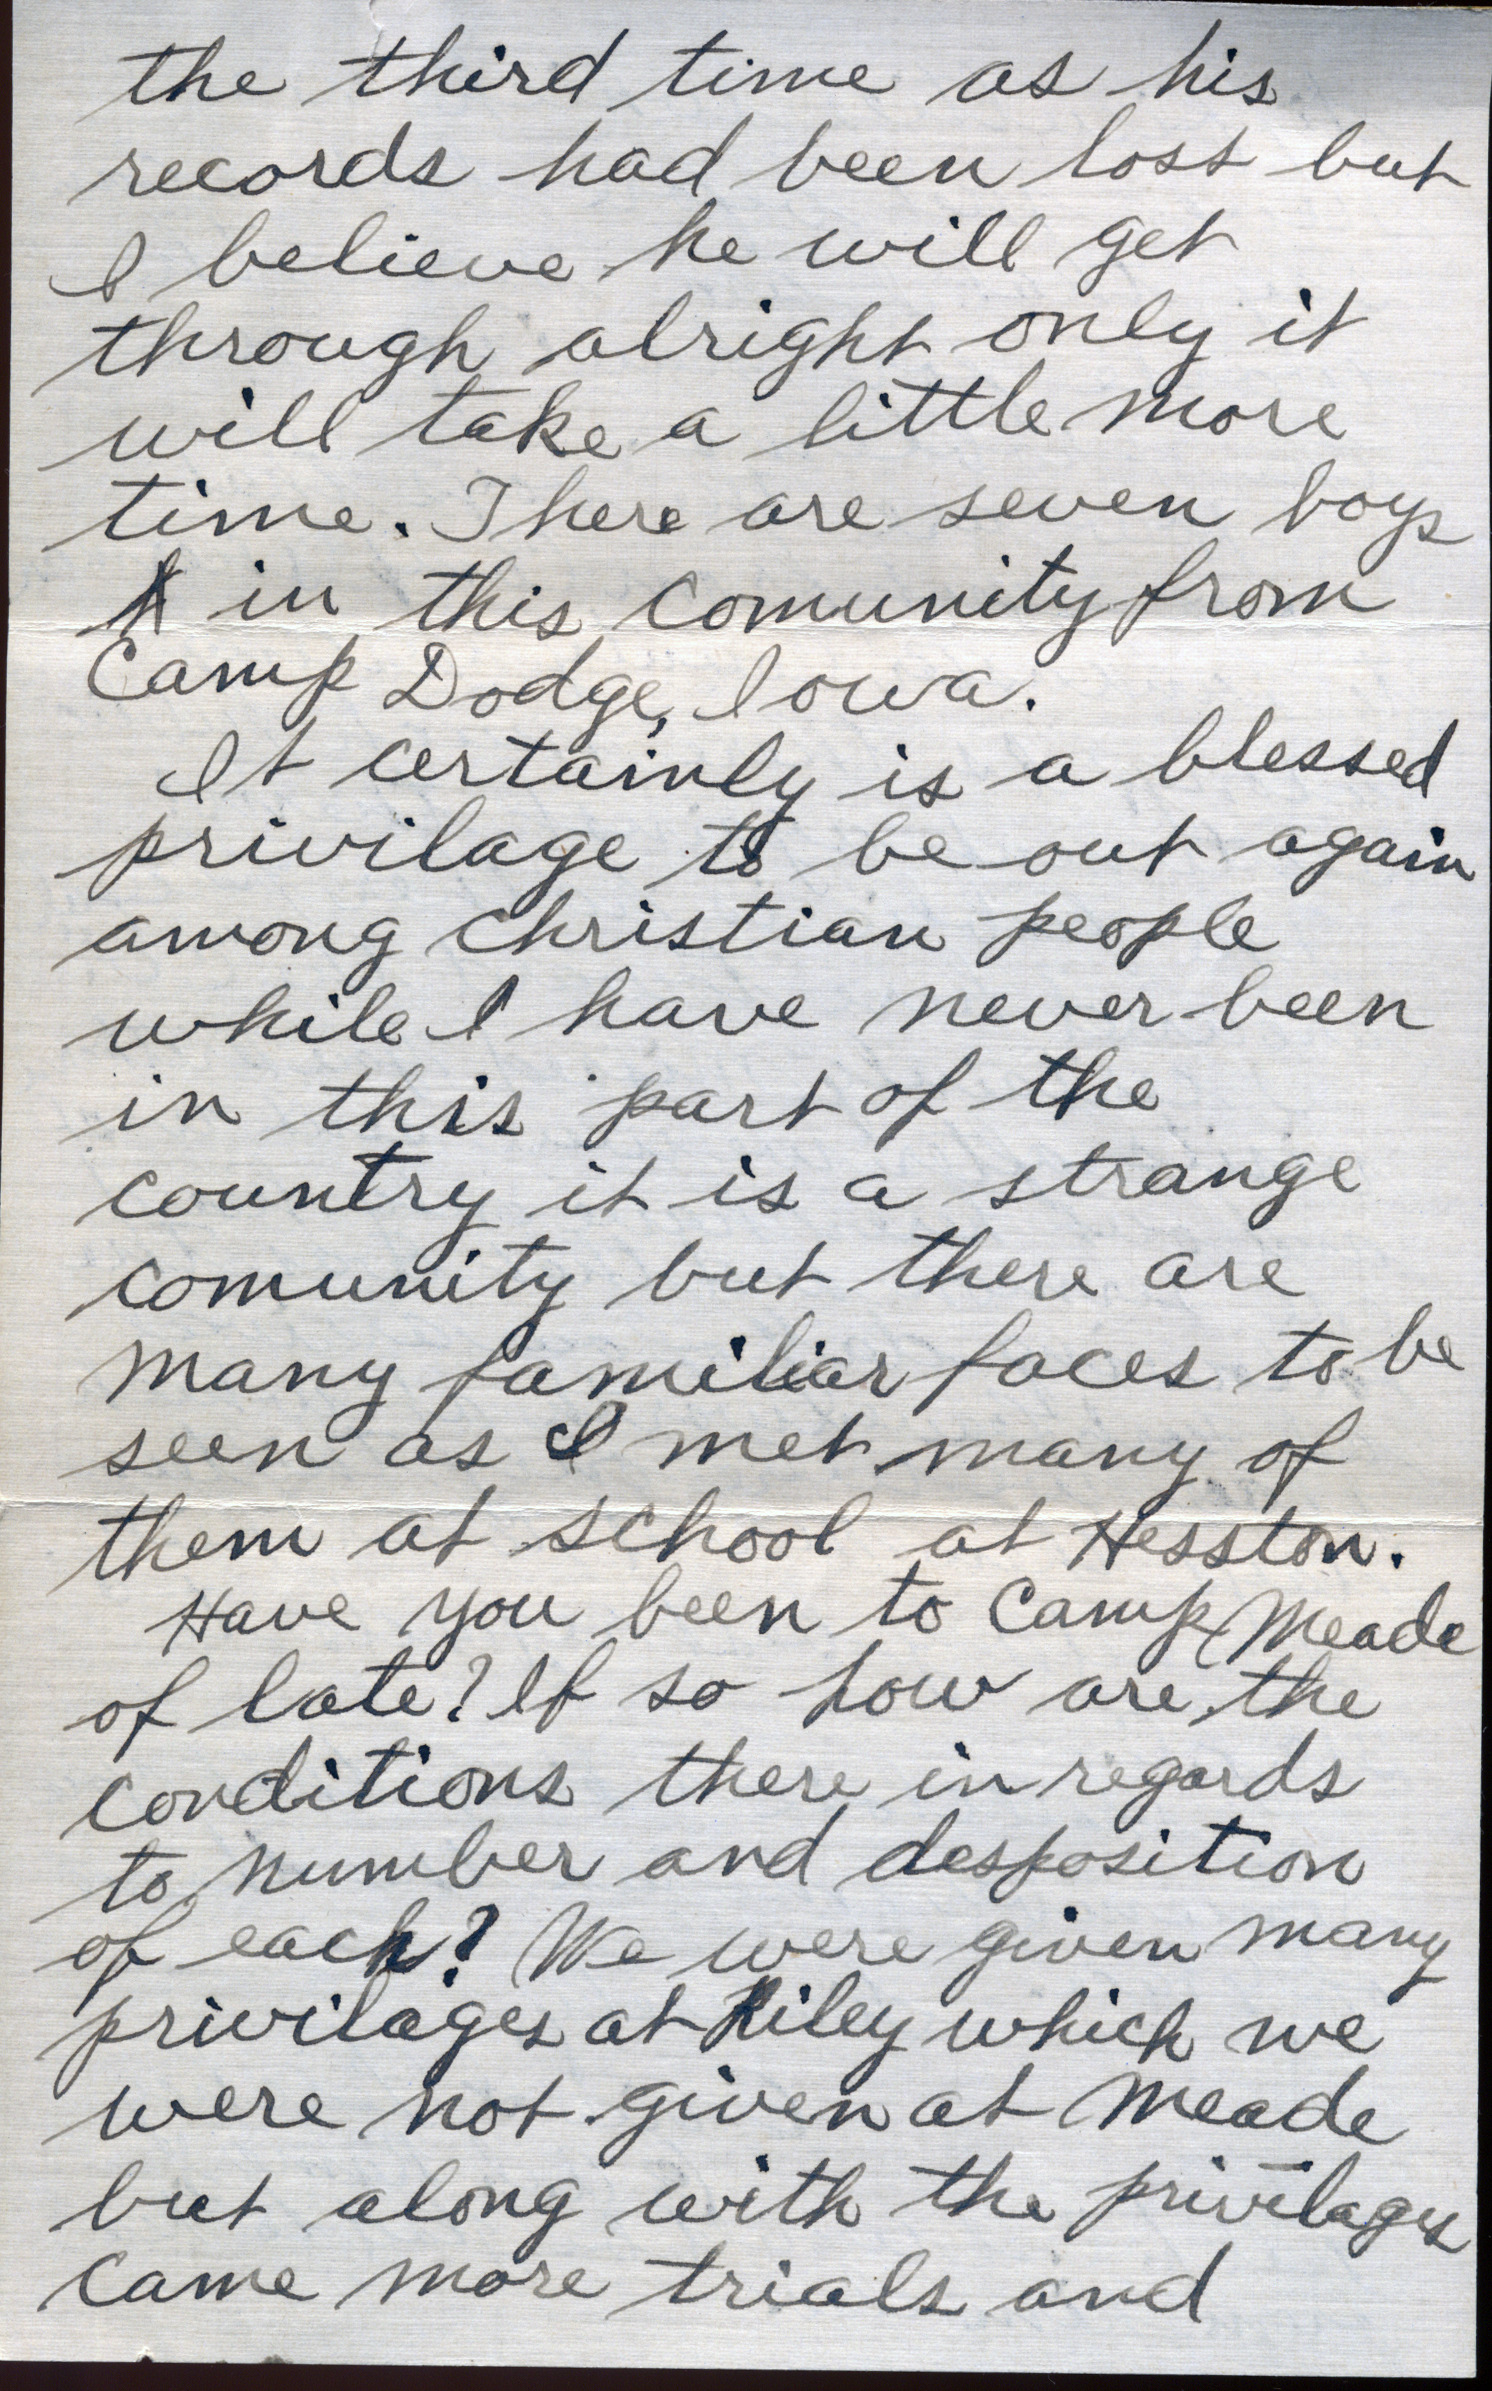 the third time as his
records had been lost but
I believe he will get
through alright only it
will take a little more
time. There are seven boys
in this comunity from
Camp Dodge, Iowa.
It certainly is a blessed
privilage to be out again
among christian people
while I have never been
in this part of the
country it is a strange
comunity but there are
many familiar faces to be
seen as I met many of
them at school at Hesston.
Have you been to Camp Meade
of late? If so how are the
conditions there in regards
to number and desposition
of each? We were given many
privilages at Riley which we
were not given at Meade
but along with the privilages
came more trials and